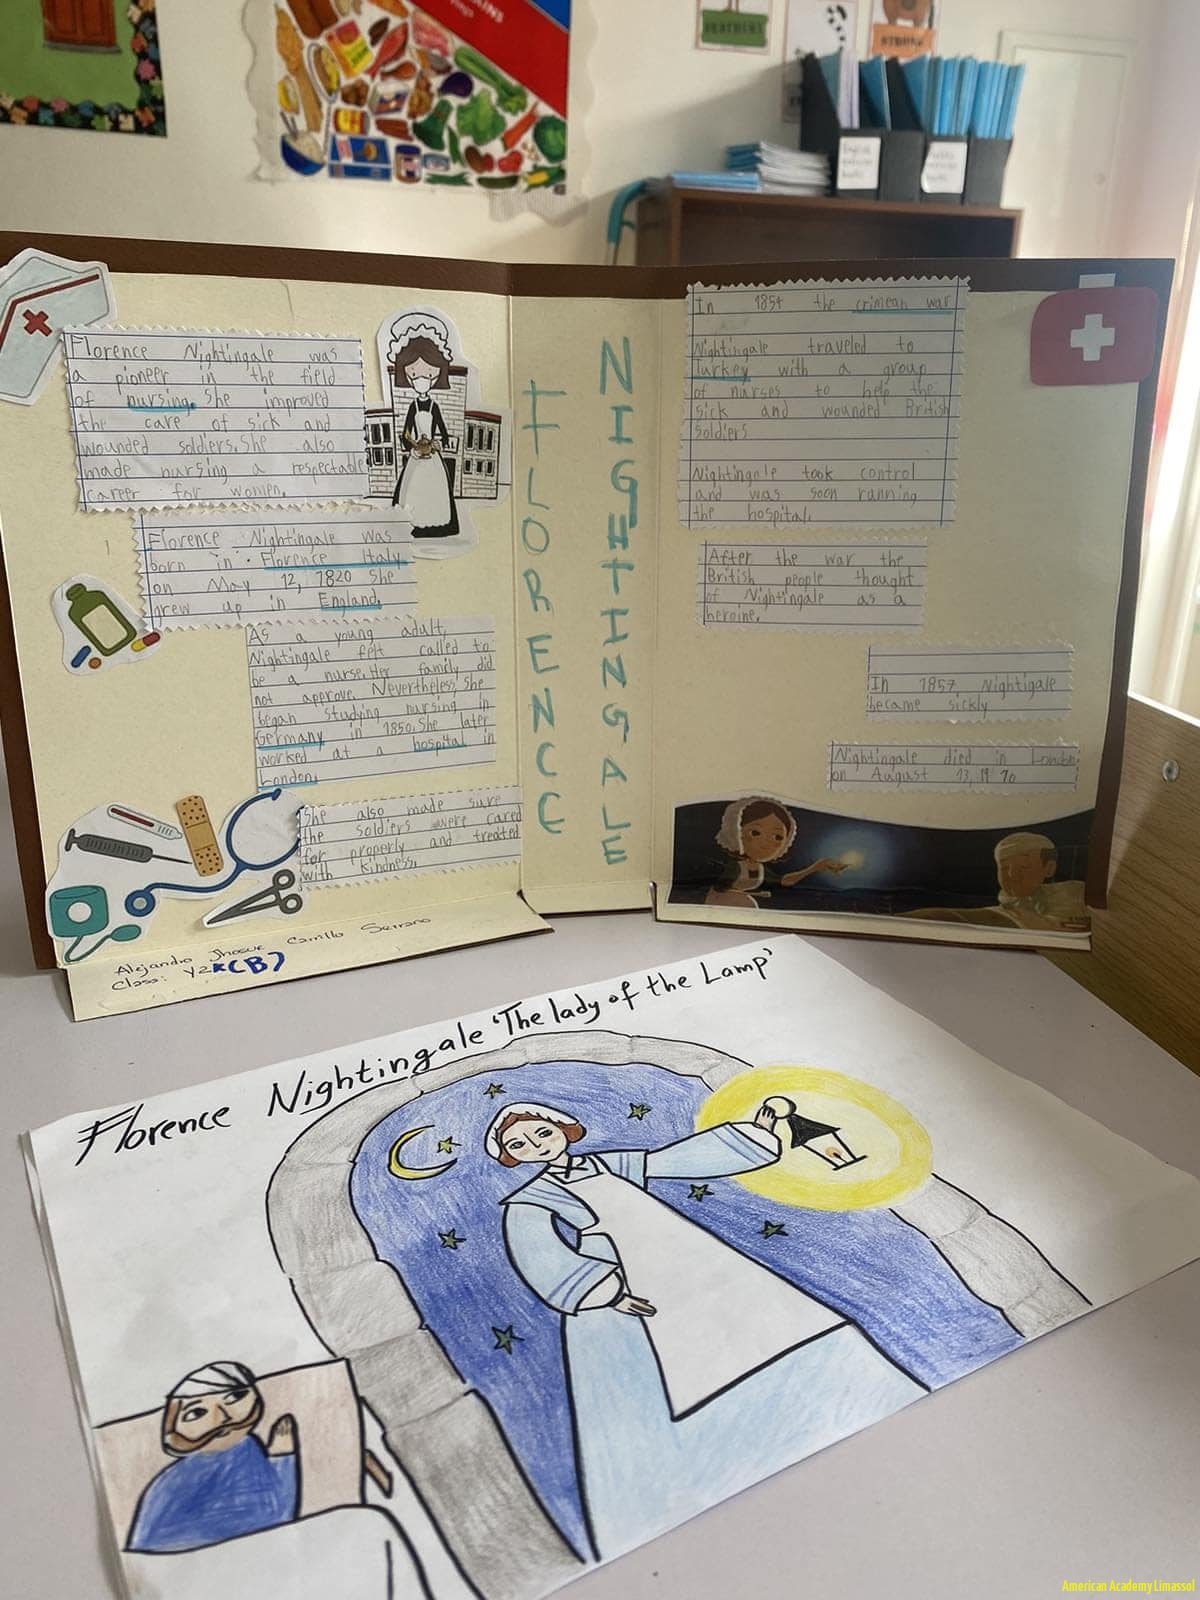 Florence Nightingale was
a pioneer in the field
of nursing. She improved
the care of sick and
wounded soldiers. She also
made nursing a respectable
career for women.
Florence Nightingale was
born in Florence Italy
on May 12, 1820 She
grew up in England.
As a young adult,
Nightingale felt called to
be a nurse. Her family did
not approve. Nevertheless, She
began studying nursing in
Germany in 1850. She later
worked at a hospital in
London.
She also made sure
the soldiers were cared
for properly and treated
with kindness.
FLORENCC
NIGHTINGALE
In 1854 the crimean war
Nightingale traveled to
Turkey with a group
of nurses to help the
sick and wounded British
Soldiers
Nightingale took control
and was soon running
the hospital.
After the war the
British people thought
of Nightingale as a
heroine.
In 1857, Nightigale
became sickly
Nightingale died in London
on August 13,
Alejandro Jhosue Carrillo Serrano
Class: Y2K(B)
Florence Nightingale 'The lady of the Lamp'
STRONG
American Academy Limassol